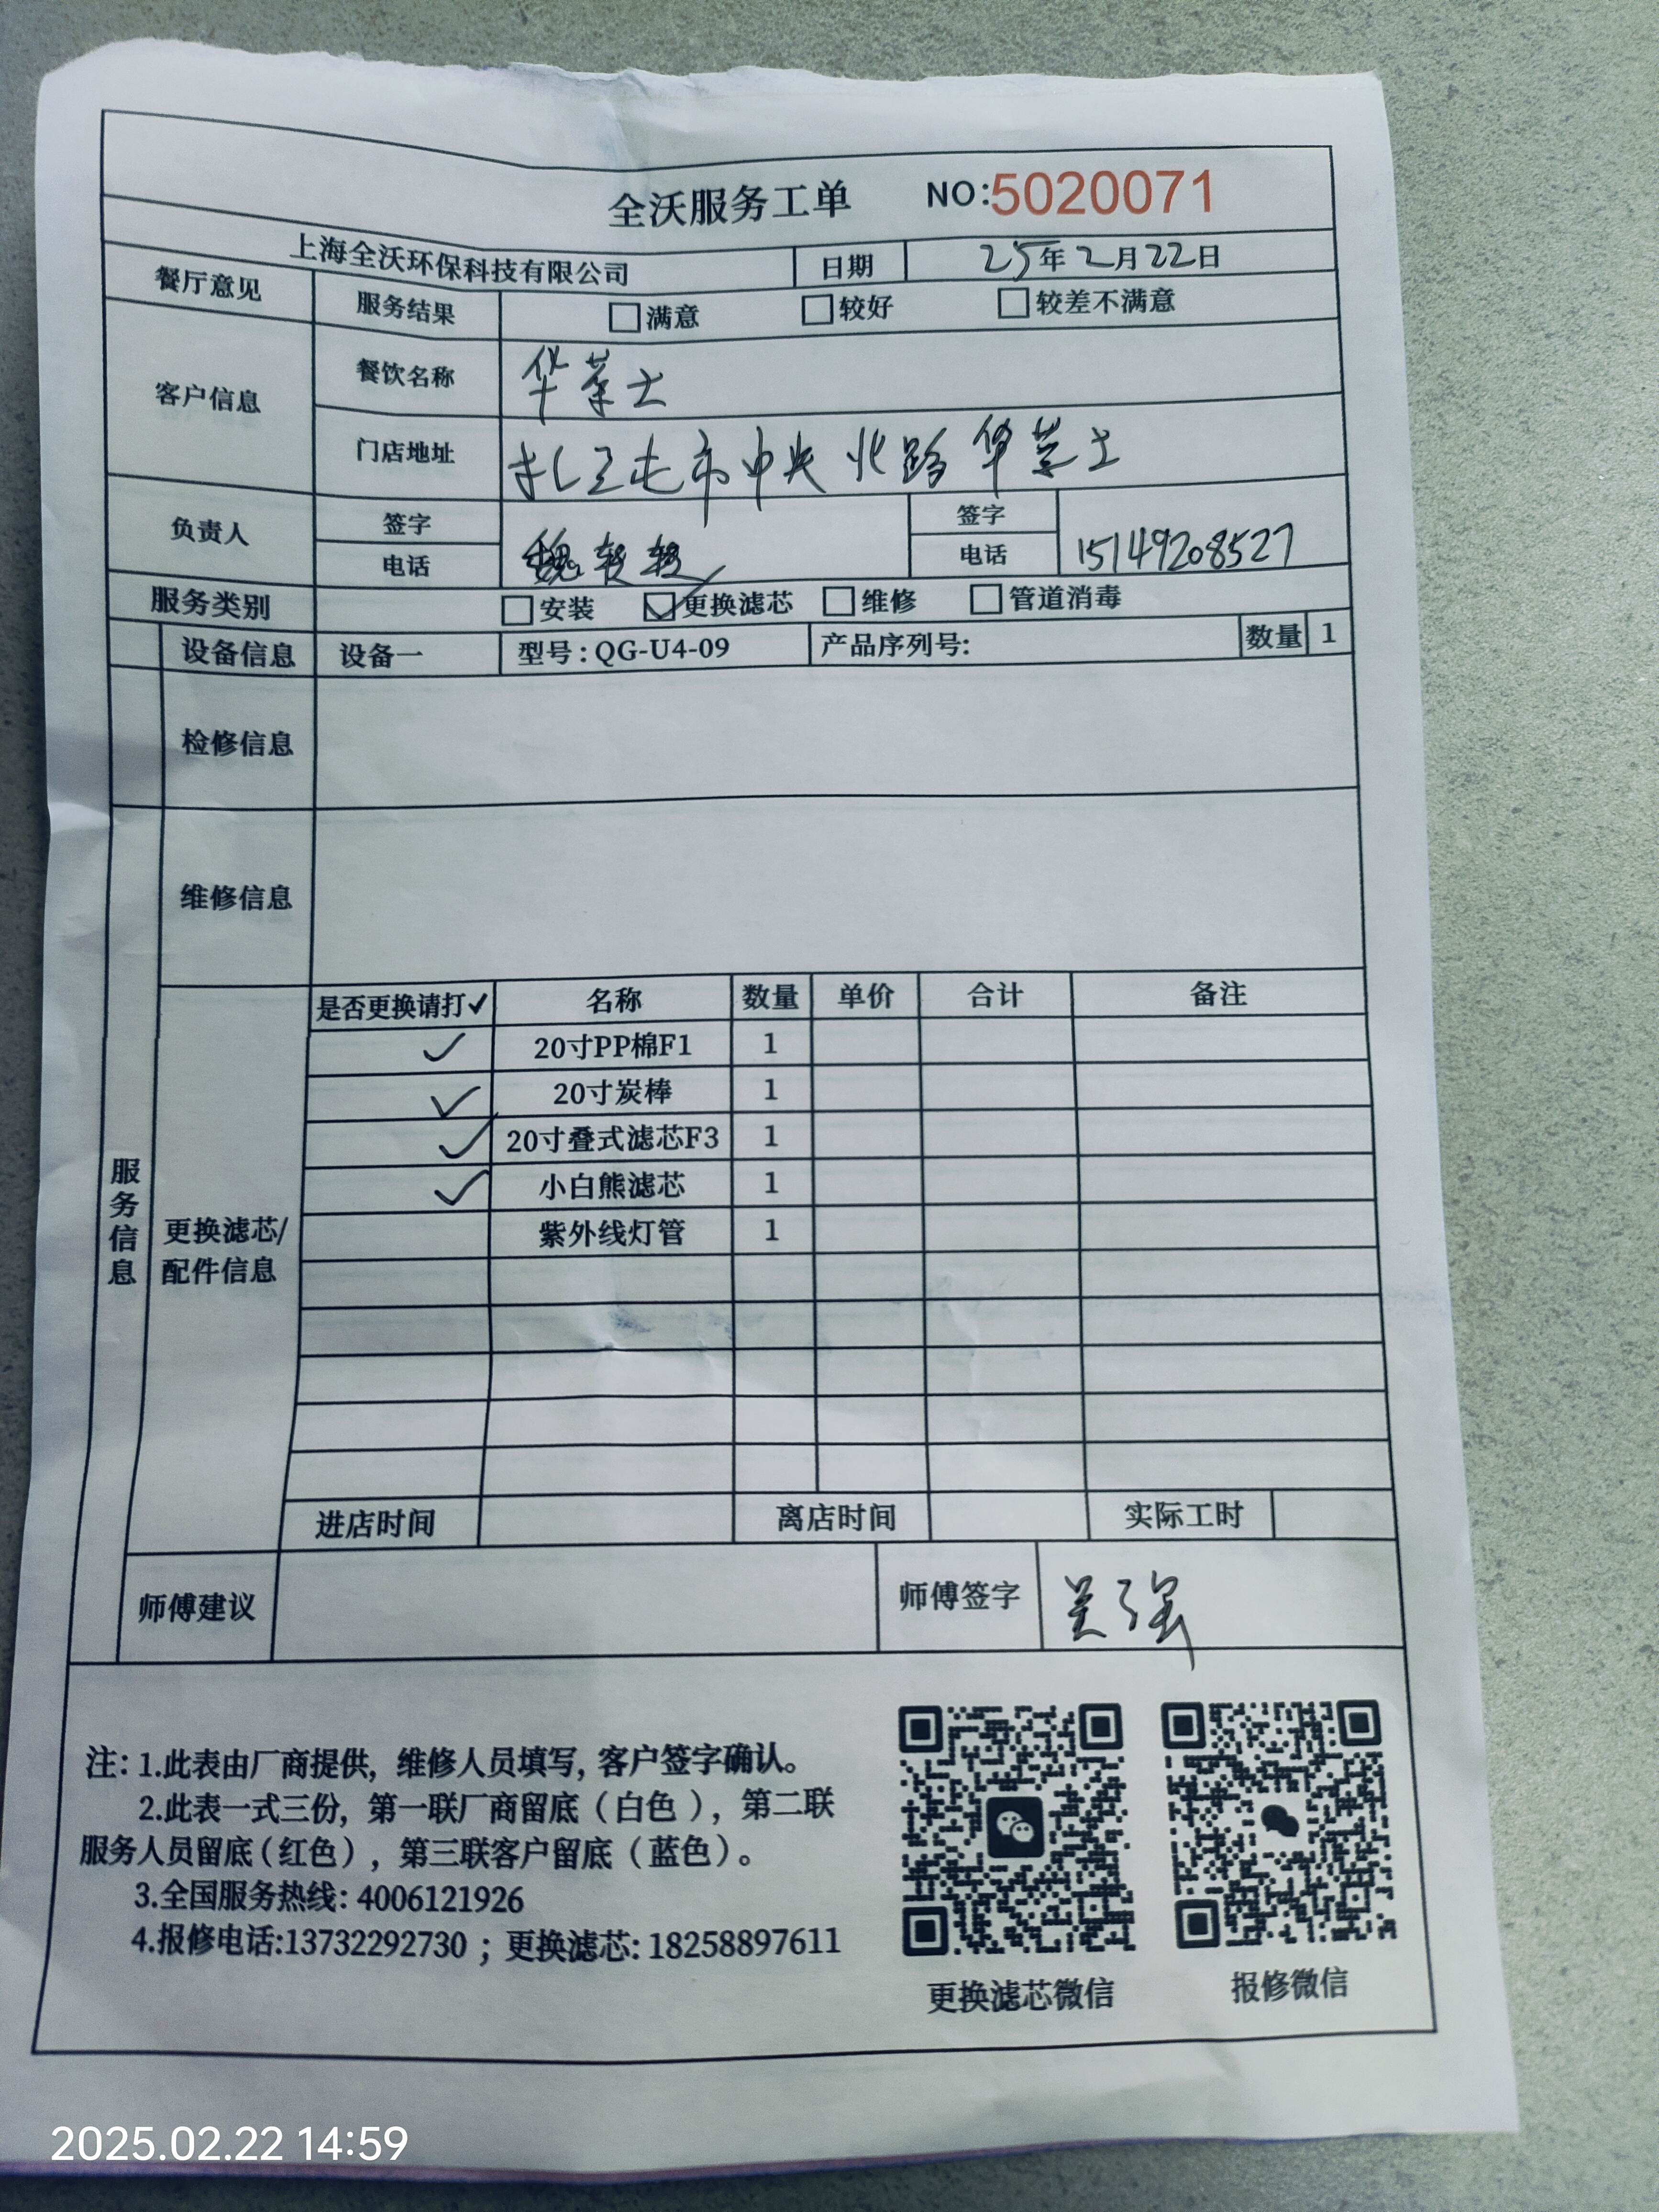 全沃服务工单 NO:5020071
上海全沃环保科技有限公司 日期 25年2月22日
餐厅意见 服务结果 □满意 □较好 □较差不满意
客户信息 餐饮名称 华莱士
门店地址 扎兰屯市中央北路华莱士
负责人 签字 签字
电话 魏 电话 15149208527
服务类别 □安装 ☑更换滤芯 □维修 □管道消毒
设备信息 设备一 型号:QG-U4-09 产品序列号: 数量 1
检修信息
维修信息
服务信息
更换滤芯/
配件信息
是否更换请打✓ 名称 数量 单价 合计 备注
✓ 20寸PP棉F1 1
✓ 20寸炭棒 1
✓ 20寸叠式滤芯F3 1
✓ 小白熊滤芯 1
紫外线灯管 1
进店时间 离店时间 实际工时
师傅建议 师傅签字 吴强
注: 1.此表由厂商提供, 维修人员填写, 客户签字确认。
2.此表一式三份, 第一联厂商留底（白色）, 第二联
服务人员留底（红色）, 第三联客户留底（蓝色）。
3.全国服务热线: 4006121926
4.报修电话:13732292730 ; 更换滤芯: 18258897611
更换滤芯微信 报修微信
2025.02.22 14:59